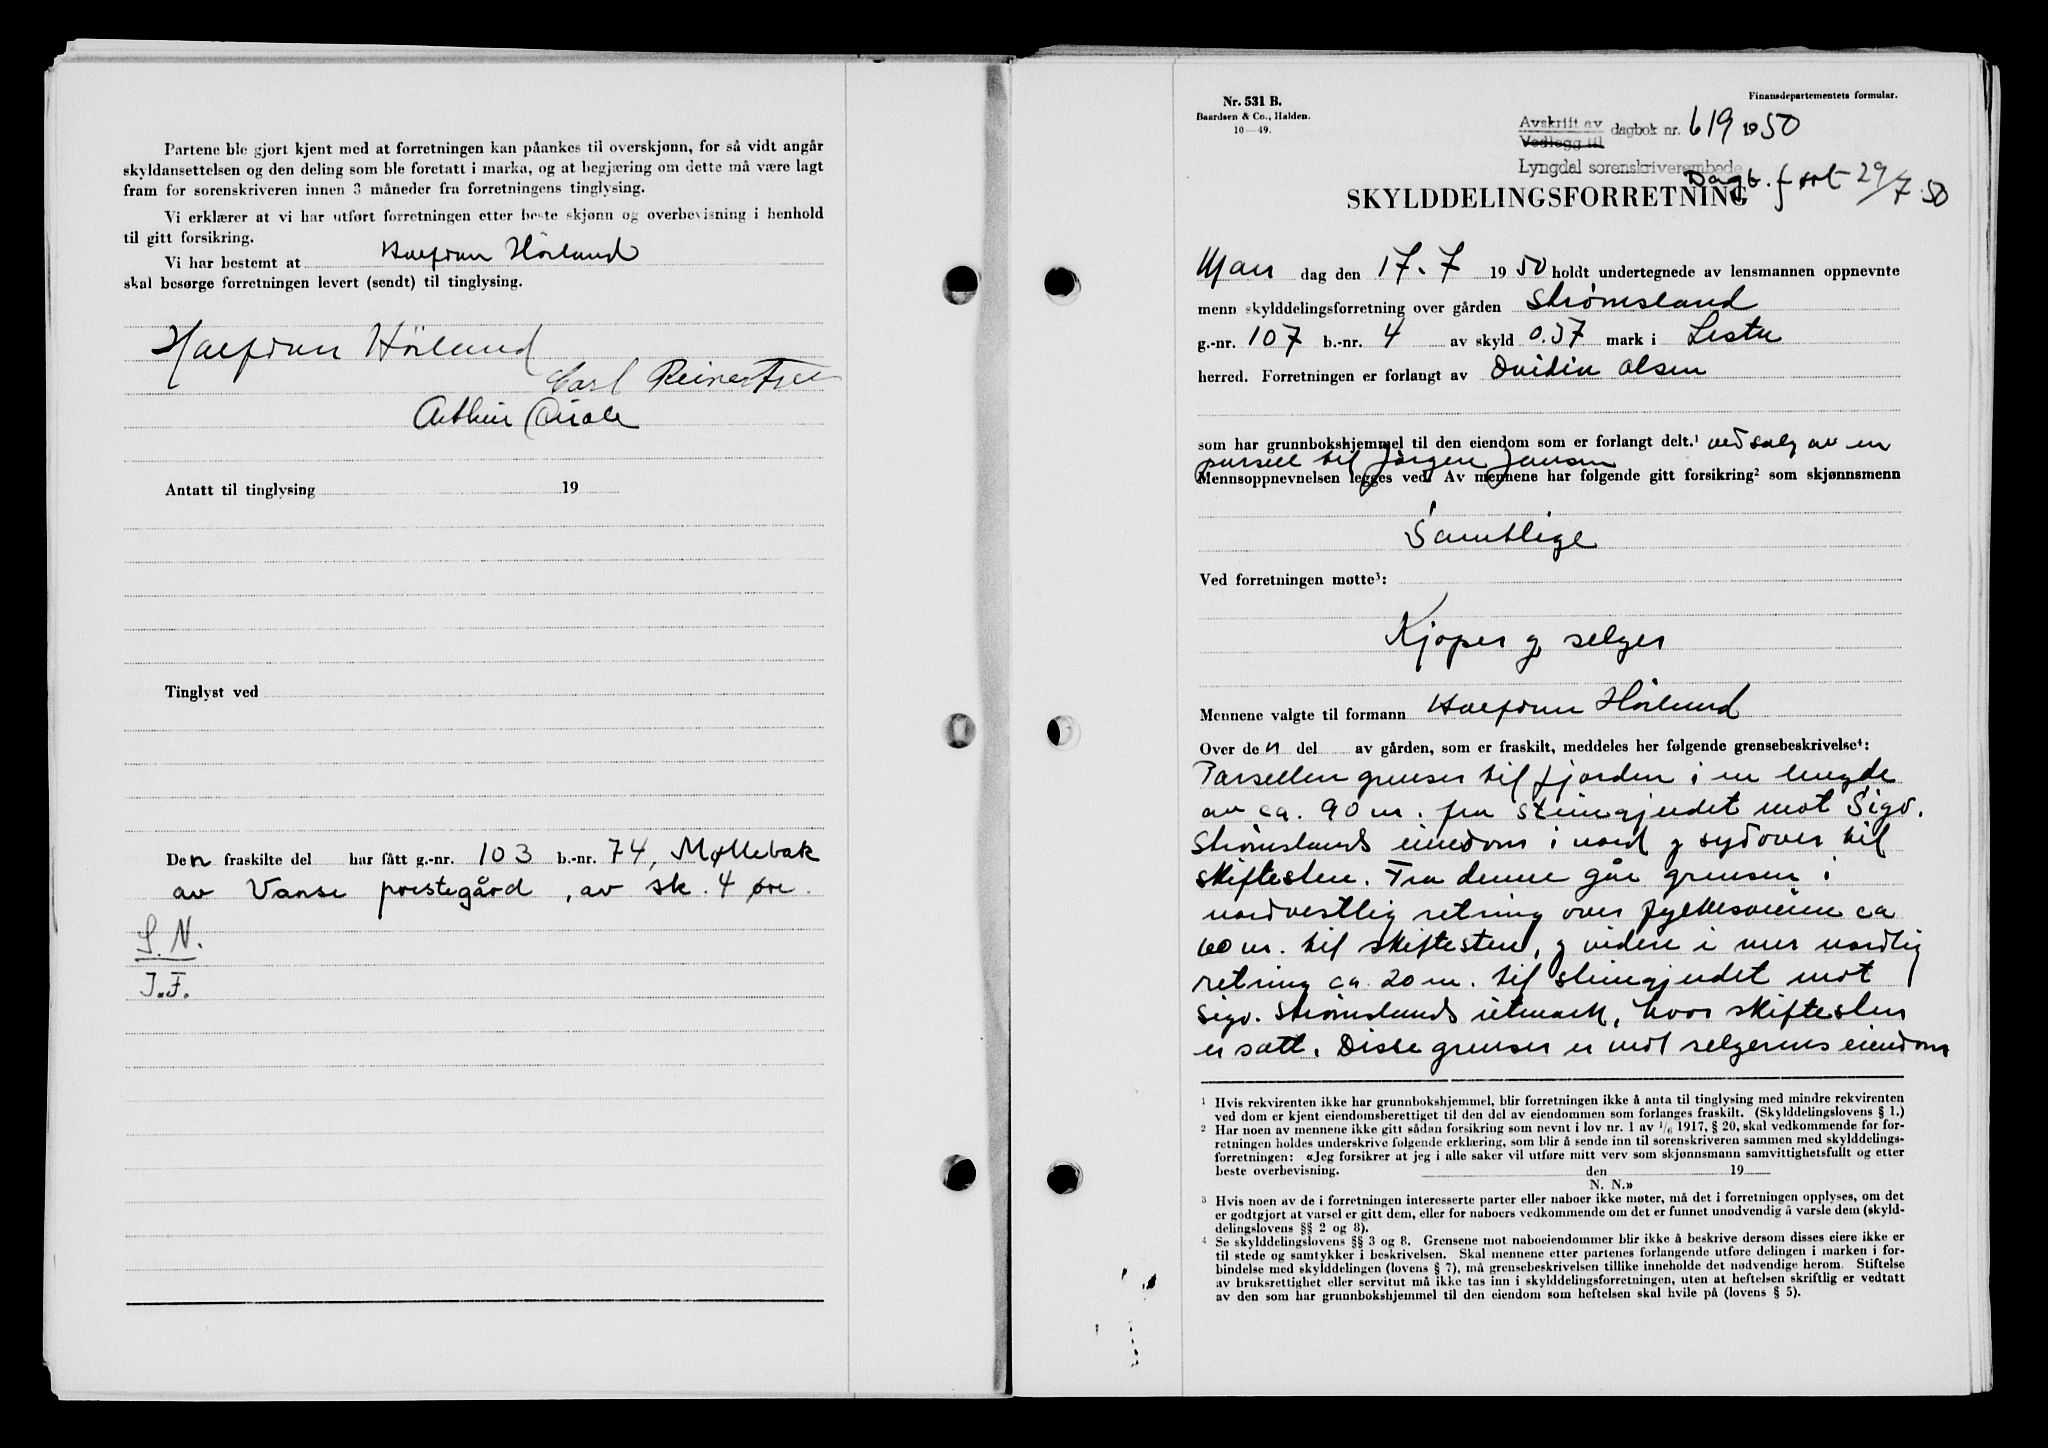 Partene ble gjort kjent med at forretningen kan påankes til overskjønn, for så vidt angår
skyldansettelsen og den deling som ble foretatt i marka, og at begjæring om dette må være lagt
fram for sorenskriveren innen 3 måneder fra forretningens tinglysing.
Vi erklærer at vi har utført forretningen etter beste skjønn og overbevisning i henhold
til gitt forsikring.
Vi har bestemt at Halfdan Hörlund
skal besørge forretningen levert (sendt) til tinglysing.
Halfdan Hörlund
Carl Reinertsen
Arthur Qvale
Antatt til tinglysing 19
Tinglyst ved
Den fraskilte del har fått g.-nr. 103 b.-nr. 74, Møllebak
av Vanse prestegård, av sk. 4 øre.
S.N.
J.F.
Nr. 531 B.
Baardsen & Co., Halden.
10—49.
Finansdepartementets formular.
Avskrift av
Vedlegg til dagbok nr. 619 1950
Lyngdal sorenskriverembede
Dagb. ført 29/7.50
SKYLDDELINGSFORRETNING
Man dag den 17.7 1950 holdt undertegnede av lensmannen oppnevnte
menn skylddelingsforretning over gården Strømsland
g.-nr. 107 b.-nr. 4 av skyld 0.57 mark i Lista
herred. Forretningen er forlangt av Ovidia Olsen
som har grunnbokshjemmel til den eiendom som er forlangt delt.¹ ved salg av en
parsell til Jørgen Jansen
Mennsoppnevnelsen legges ved. Av mennene har følgende gitt forsikring² som skjønnsmenn
Samtlige
Ved forretningen møtte³:
Kjøper og selger
Mennene valgte til formann Halfdan Hörlund
Over den del av gården, som er fraskilt, meddeles her følgende grensebeskrivelse⁴:
Parsellen grenser til fjorden i en lengde
av ca. 90 m. fra steingjerdet mot Sigv.
Strømslands eiendom i nord og sydover til
skiftesten. Fra denne går grensen i
nordvestlig retning over fylkesveien ca
60 m. til skiftesten, og videre i mer nordlig
retning ca. 20 m. til steingjerdet mot
Sigv. Strømslands utmark, hvor skiftesten
er satt. Disse grenser er mot selgerens eiendom
¹ Hvis rekvirenten ikke har grunnbokshjemmel, blir forretningen ikke å anta til tinglysing med mindre rekvirenten
ved dom er kjent eiendomsberettiget til den del av eiendommen som forlanges fraskilt. (Skylddelingslovens § 1.)
² Har noen av mennene ikke gitt sådan forsikring som nevnt i lov nr. 1 av 1/6 1917, § 20, skal vedkommende før for-
retningen holdes underskrive følgende erklæring, som blir å sende inn til sorenskriveren sammen med skylddelings-
forretningen: «Jeg forsikrer at jeg i alle saker vil utføre mitt verv som skjønnsmann samvittighetsfullt og etter
beste overbevisning. den 19
N. N.»
³ Hvis noen av de i forretningen interesserte parter eller naboer ikke møter, må det i forretningen opplyses, om det
er godtgjort at varsel er gitt dem, eller for naboers vedkommende om det er funnet unødvendig å varsle dem (skyld-
delingslovens §§ 2 og 8).
⁴ Se skylddelingslovens §§ 3 og 8. Grensene mot naboeiendommer blir ikke å beskrive dersom disses eiere ikke er
til stede og samtykker i beskrivelsen. Skal mennene etter partenes forlangende utføre delingen i marken i for-
bindelse med skylddelingen (lovens § 7), må grensebeskrivelsen tillike inneholde det nødvendige herom. Stiftelse
av bruksrettighet eller servitut må ikke tas inn i skylddelingsforretningen, uten at heftelsen skriftlig er vedtatt
av den som har grunnbokshjemmel til den eiendom som heftelsen skal hvile på (lovens § 5).